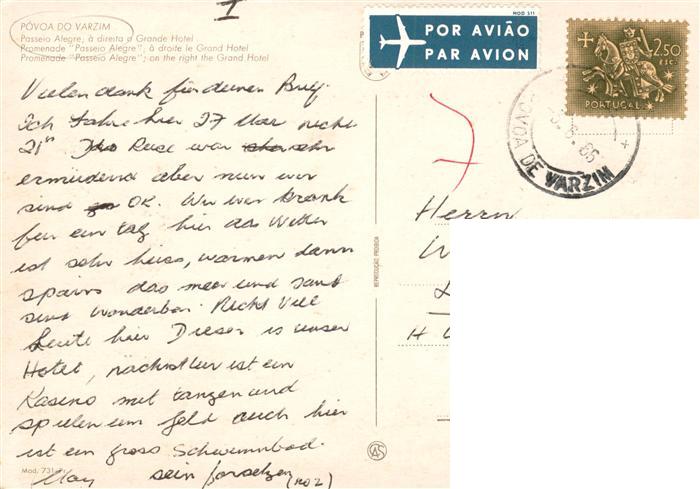 I
PÓVOA DO VARZIM
Passeio Alegre, à direita o Grande Hotel
Promenade "Passeio Alegre", à droite le Grand Hotel
Promenade "Passeio Alegre"; on the right the Grand Hotel
MOD 511
POR AVIÃO
PAR AVION
2$50
ESC.
PORTUGAL
POVOA DE VARZIM
Vielen dank für deinen Brief.
Ich fahre hier 27 Mar nicht
21st Die Reise war sehr
ermüdend aber nun wir
sind OK. Wir war krank
für ein tag hier das Wetter
ist sehr heiss, warmen dann
das meer und sand
sind wonderbar. Nicht viele
Leute hier Dieser is unser
Hotel, nächst tür ist ein
Kaseno mit tanzen und
spielen um geld auch hier
ist ein gross Schwimmbad.
May sein forsetzen (no 2)
Herrn
H
REPRODUÇÃO PROIBIDA
Mod. 731